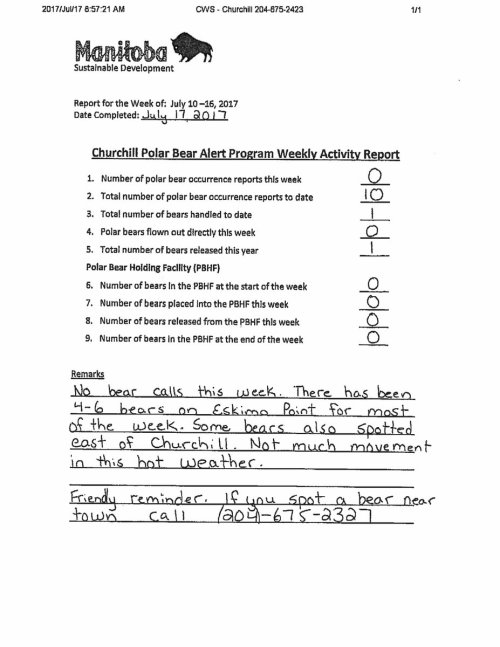 2017/Jul/17 8:57:21 AM CWS - Churchill 204-675-2423 1/1
Manitoba
Sustainable Development
Report for the Week of: July 10 –16, 2017
Date Completed: July 17 2017
Churchill Polar Bear Alert Program Weekly Activity Report
1. Number of polar bear occurrence reports this week 0
2. Total number of polar bear occurrence reports to date 10
3. Total number of bears handled to date 1
4. Polar bears flown out directly this week 0
5. Total number of bears released this year 1
Polar Bear Holding Facility (PBHF)
6. Number of bears in the PBHF at the start of the week 0
7. Number of bears placed into the PBHF this week 0
8. Number of bears released from the PBHF this week 0
9. Number of bears in the PBHF at the end of the week 0
Remarks
No bear calls this week. There has been
4-6 bears on Eskimo Point for most
of the week. Some bears also spotted
east of Churchill. Not much movement
in this hot weather.
Friendy reminder. If you spot a bear near
town call (204)-675-2327